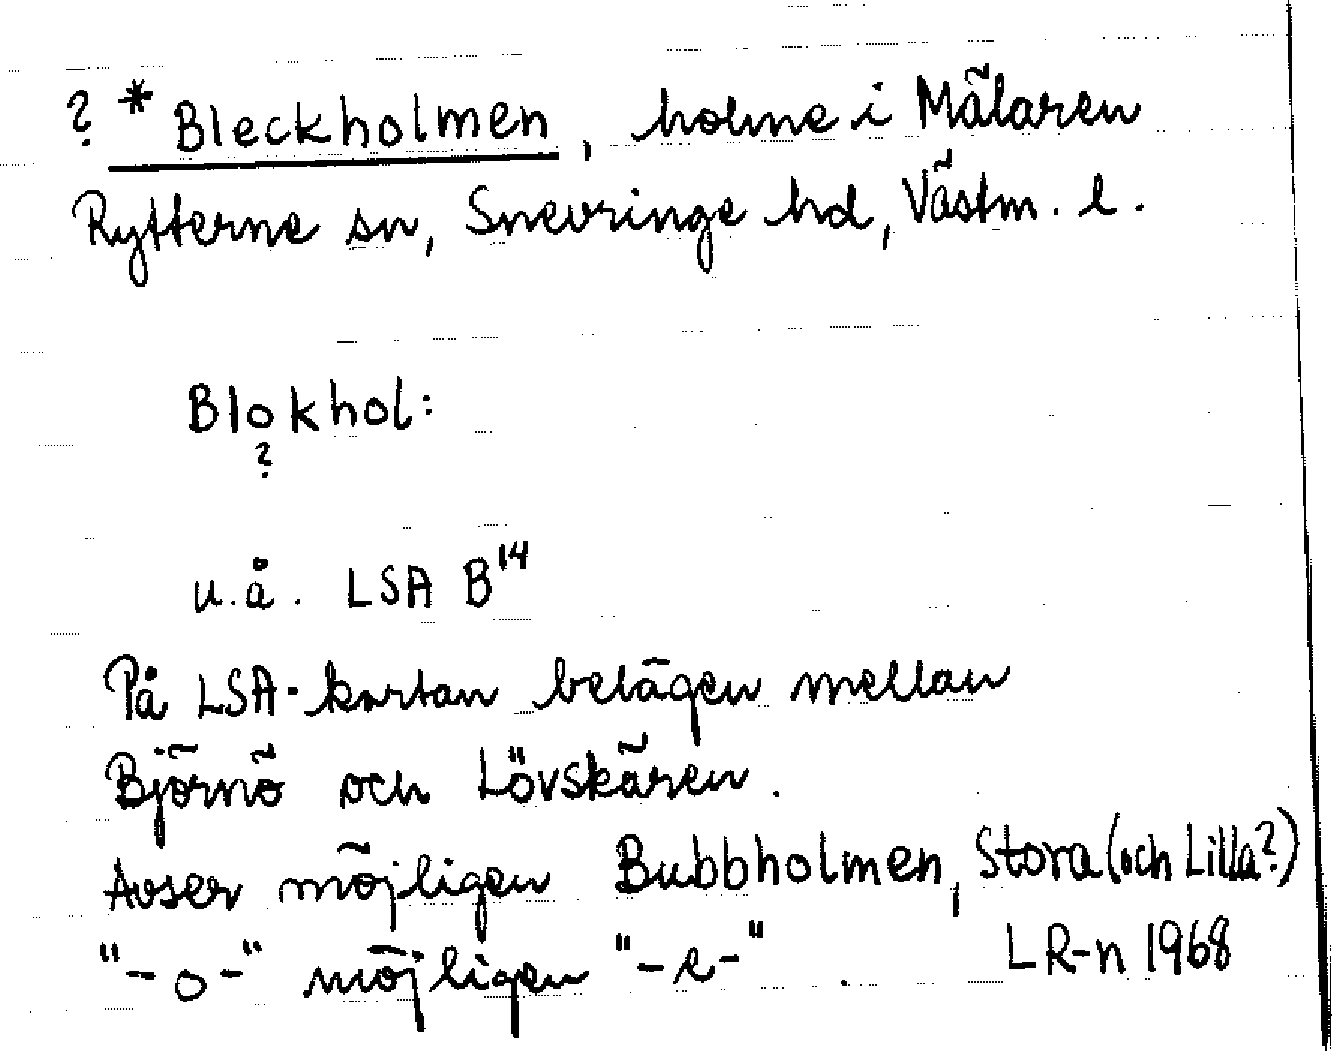 ? * Bleckholmen, holme i Mälaren
Rytterne sn, Snevringe hd, Västm. l.
Blokhol:
?
u.å. LSA B¹⁴
På LSA-kartan belägen mellan
Björnö och Lövskären.
Avser möjligen Bubbholmen, Stora (och Lilla?)
"-o-" möjligen "-e-". LR-n 1968